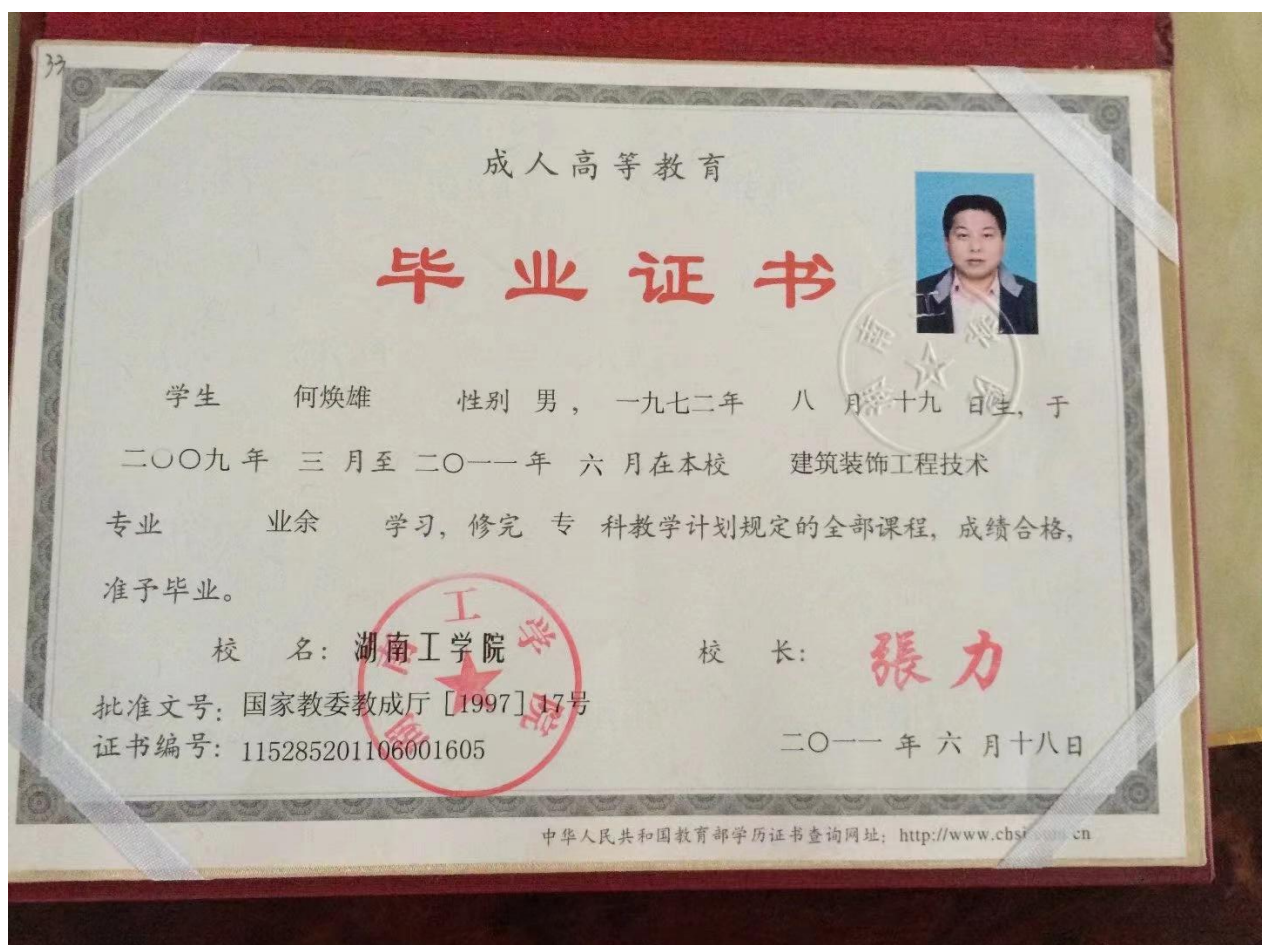 33
成人高等教育
毕业证书
学生 何焕雄 性别 男， 一九七二年 八 月 十九 日生，于
二〇〇九 年 三 月至 二〇一一 年 六 月在本校 建筑装饰工程技术
专业 业余 学习，修完 专 科教学计划规定的全部课程，成绩合格，
准予毕业。
校 名：湖南工学院 校 长：張力
湖南工学院
批准文号：国家教委教成厅［1997］17号
证书编号：115285201106001605 二〇一一 年 六 月十八日
中华人民共和国教育部学历证书查询网址：http://www.chsi.com.cn